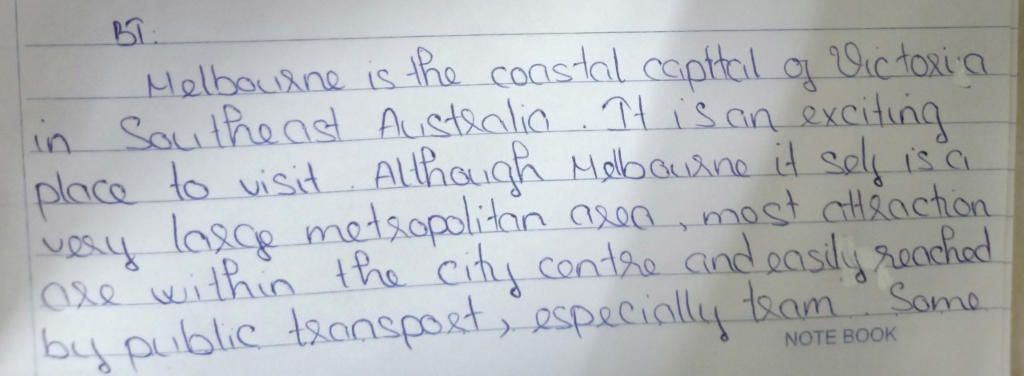 BT:
Melbourne is the coastal capital of Victoria
in Southeast Australia. It is an exciting
place to visit. Although Melbourne it self is a
very large metropolitan area, most attraction
are within the city centre and easily reached
by public transport, especially tram. Some
NOTE BOOK